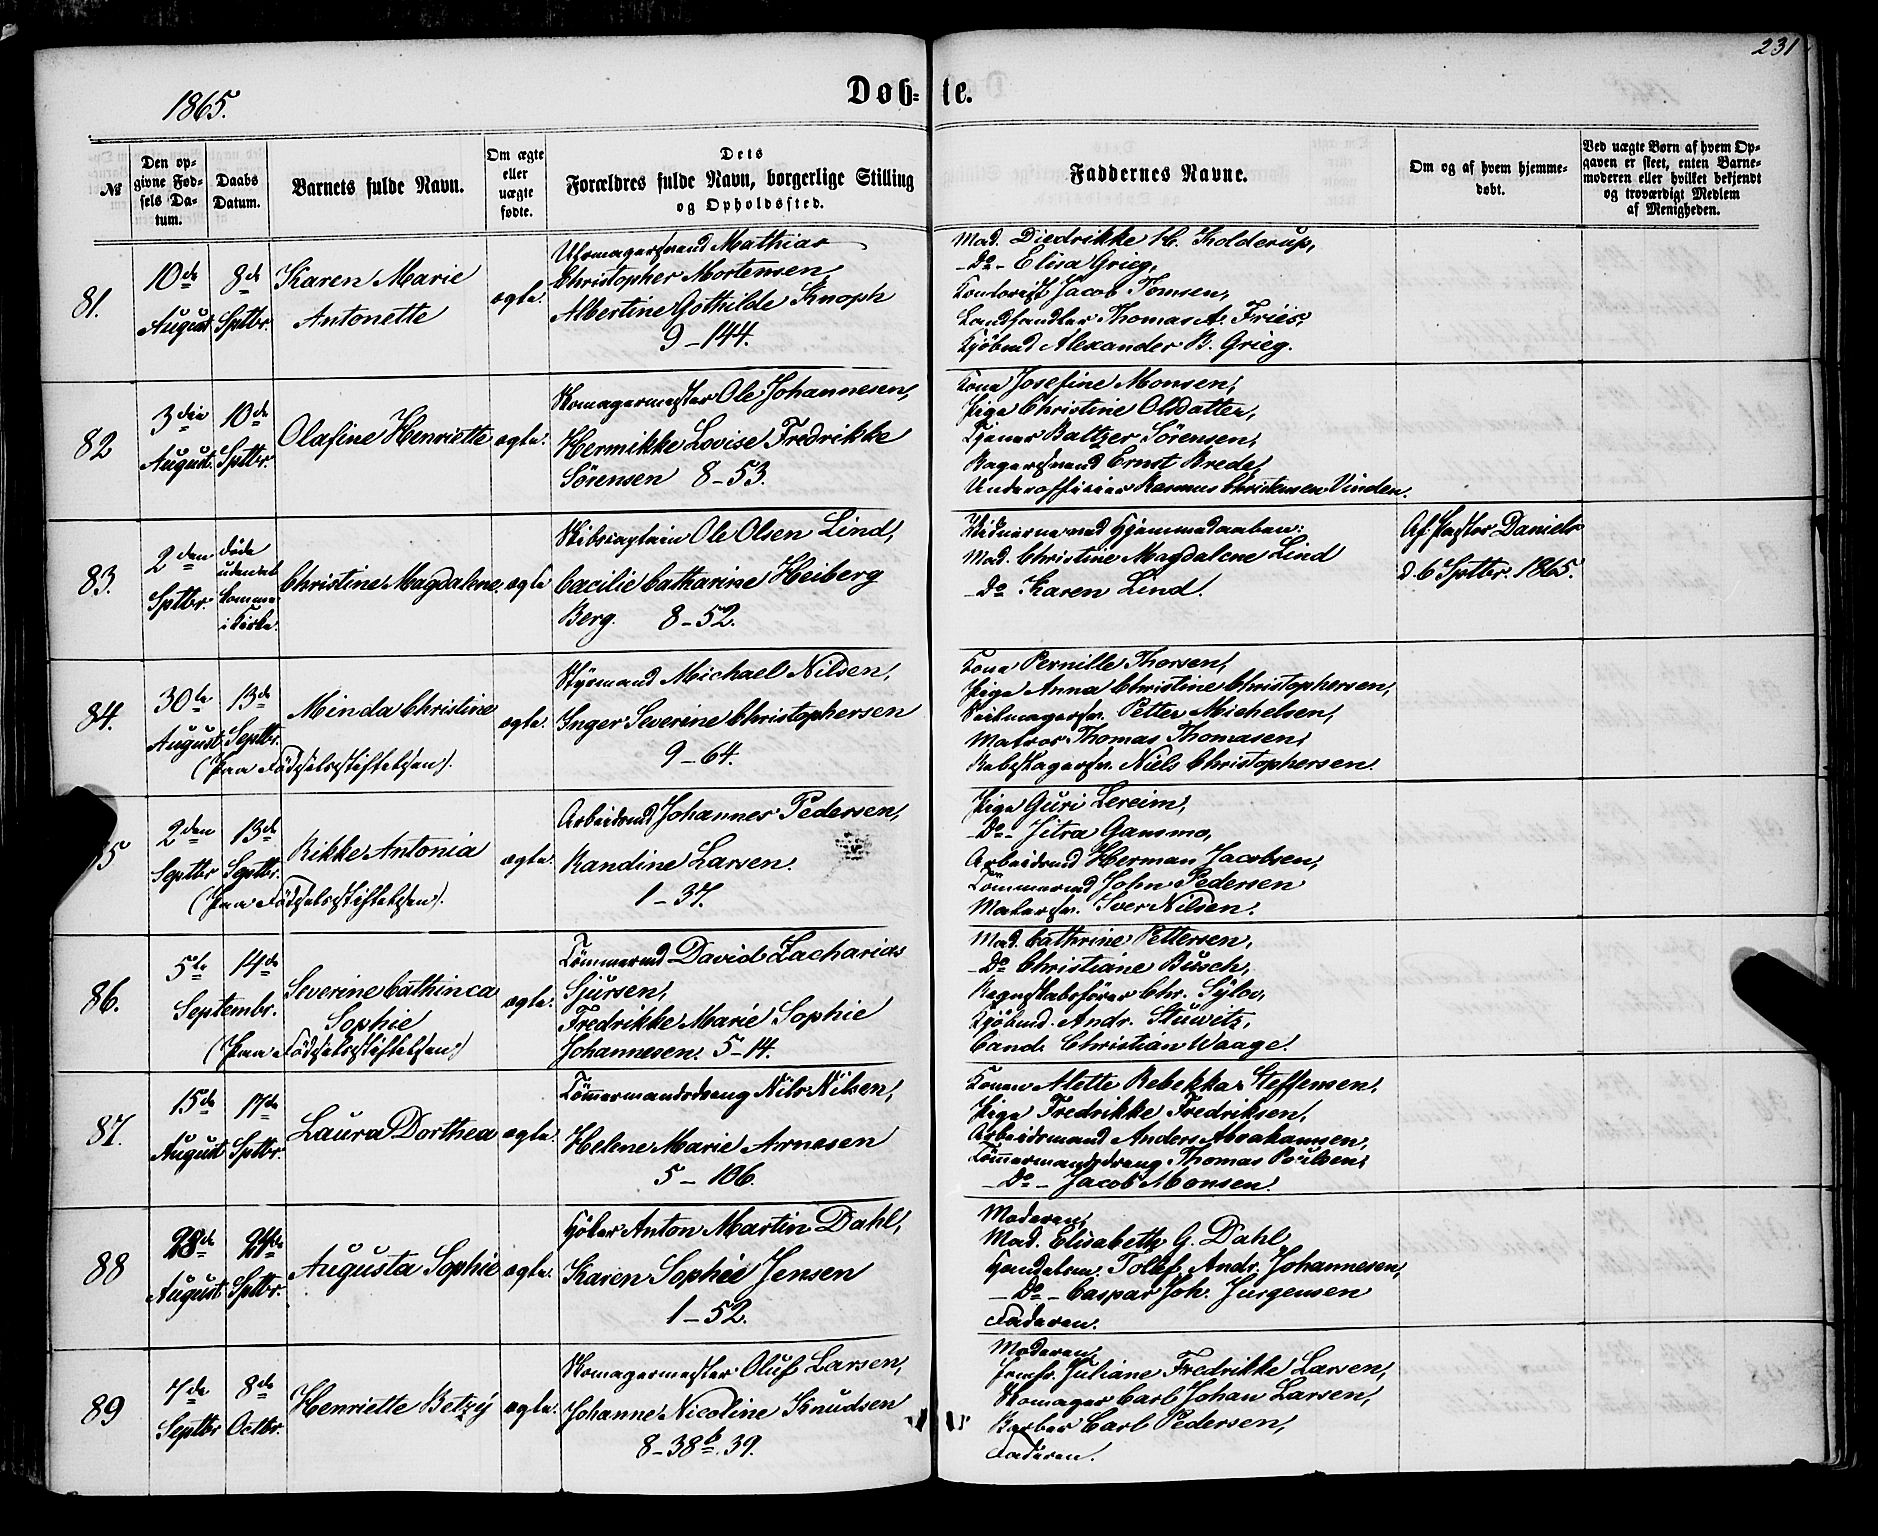 231
1865.
Døb- te.
№
Den op-
givne Fød-
sels Da-
tum.
Daabs
Datum.
Barnets fulde Navn.
Om ægte
eller
uægte
fødte.
Dets
Forældres fulde Navn, borgerlige Stilling
og Opholdssted.
Faddernes Navne.
Om og af hvem hjemme-
døbt.
Ved uægte Børn af hvem Op-
gaven er skeet, enten Barne-
moderen eller hvilket bekjendt
og troværdigt Medlem
af Menigheden.
81.
10de
August
8de
Sptbr.
Karen Marie
Antonette
ægte.
Uhrmagersvend Mathias
Christopher Mortensen,
Albertine Gothilde Knoph
9-144.
Mad. Diedrikke H. Kolderup,
-Do- Elisa Grieg,
Kontorist Jacob Tomsen,
Landhandler Thomas A. Friis,
Kjøbmd Alexander B. Grieg.
82
3die
August.
10de
Sptbr.
Olafine Henriette
ægte.
Skomagermester Ole Johannesen,
Hermikke Lovise Fredrikke
Sörensen 8-53.
Kone Josefine Monsen,
Pige Christine Olsdatter,
Tjener Baltzer Sörensen,
Bagersvend Ernst Brede,
Underofficier Rasmus Christensen Vinden.
83.
2den
Sptbr.
døde
uden at
komme
i Kirke.
Christine Magdalene
ægte
Skibscaptein Ole Olsen Lind,
Cacilie Catharine Heiberg
Berg. 8-52.
Vidnerne ved Hjemmedaaben:
Mad. Christine Magdalene Lind
-Do Karen Lind.
Af Pastor Daniels
d. 6 Sptbr. 1865.
84.
30te
August.
13de
Septbr.
Minda Christine
(Paa Födselsstiftelsen).
ægte.
Styrmand Michael Nilsen,
Inger Severine Christophersen
9-64.
Kone Pernille Thorsen,
Pige Anna Christine Christophersen,
Seilmagersv. Petter Michelsen,
Matros Thomas Thomasen,
Rebslagersv. Niels Christophersen.
5
2den
Septbr
13de
Septbr.
Rikke Antonia
(Paa Födselsstiftelsen).
ægte.
Arbeidsmd Johannes Pedersen,
Randine Larsen.
1-37.
Pige Guri Lereim,
-Do- Jitra Gammo,
Arbeidsmd Herman Jacobsen,
Tömmermd John Pedersen
Malersv. Iver Nilsen.
86.
5te
14de
Septembr.
Severine Cathinca
Sophie
(Paa Födselsstiftelsen)
ægte.
Tömmermd David Zacharias
Sjursen,
Fredrikke Marie Sophie
Johannesen. 5-14.
Mad. Cathrine Pettersen,
-Do Christiane Busch,
Regnskabsförer Chr. Sylow,
Kjöbmd. Andr. Stuwitz,
Cand. Christian Waage.
87.
15de
August
17de
Sptbr.
Laura Dorthea
ægte.
Tömmermandsdreng Nils Nilsen,
Helene Marie Arnesen
5-106.
Konen Alette Rebekka Steffensen,
Pige Fredrikke Fredriksen,
Arbeidsmand Anders Abrahamsen,
Tömmermandsdreng Thomas Poulsen,
-Do- Jacob Monsen.
88
28de
August.
24de
Sptbr.
Augusta Sophie
ægte.
Höker Anton Martin Dahl,
Karen Sophie Jensen
1-52.
Moderen,
Mad. Elisabeth G. Dahl
Handelsm. Tollef Andr. Johannesen,
-Do- Caspar Joh. Jürgensen
Faderen.
89
7de
Septbr
8de
Octbr.
Henriette Betzy
ægte.
Skomagermester Oluf Larsen,
Johanne Nicoline Knudsen
8-38b.39.
Moderen,
Jomfr. Juliane Fredrikke Larsen,
Skomager Carl Johan Larsen,
Barber Carl Pedersen,
Faderen.